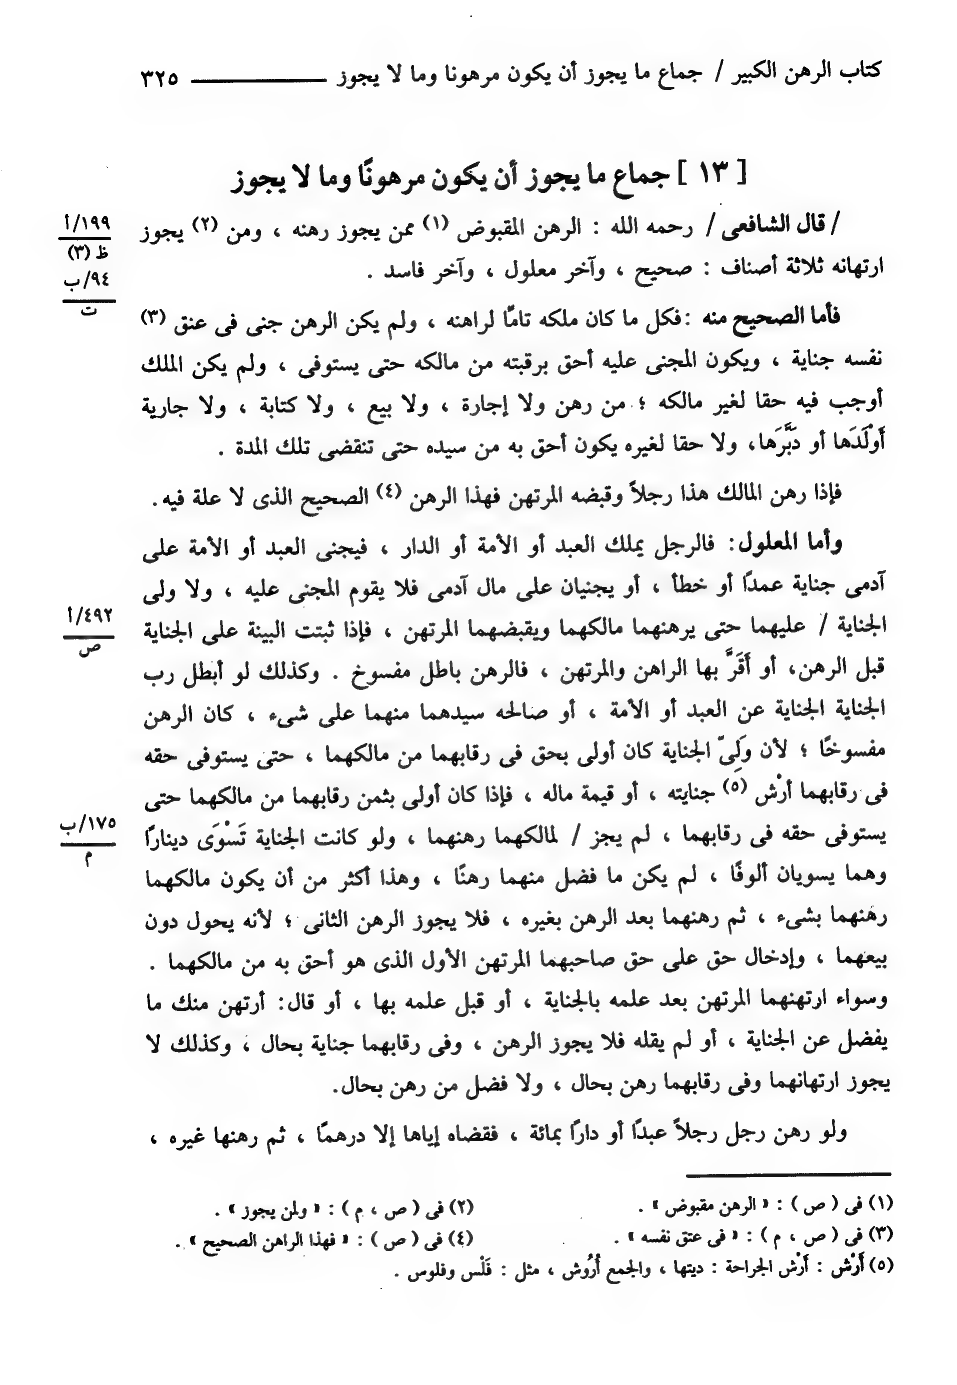 كتاب الرهن الكبير / جماع ما يجوز أن يكون مرهونا وما لا يجوز ــــــــــ ٣٢٥
[ ١٣ ] جماع ما يجوز أن يكون مرهونًا وما لا يجوز
/ قال الشافعى / رحمه الله : الرهن المقبوض (١) ممن يجوز رهنه ، ومن (٢) يجوز
ارتهانه ثلاثة أصناف : صحيح ، وآخر معلول ، وآخر فاسد .
١٩٩/أ
ظ (٣)
٩٤/ب
ت
فأما الصحيح منه :فكل ما كان ملكه تامًا لراهنه ، ولم يكن الرهن جنى فى عنق (٣)
نفسه جناية ، ويكون المجنى عليه أحق برقبته من مالكه حتى يستوفى ، ولم يكن الملك
أوجب فيه حقا لغير مالكه ؛ من رهن ولا إجارة ، ولا بيع ، ولا كتابة ، ولا جارية
أَوْلَدَها أو دَبَّرَها، ولا حقا لغيره يكون أحق به من سيده حتى تنقضى تلك المدة .
فإذا رهن المالك هذا رجلاً وقبضه المرتهن فهذا الرهن (٤) الصحيح الذى لا علة فيه.
وأما المعلول: فالرجل يملك العبد أو الأمة أو الدار ، فيجنى العبد أو الأمة على
آدمى جناية عمدًا أو خطأ ، أو يجنيان على مال آدمى فلا يقوم المجنى عليه ، ولا ولى
الجناية / عليهما حتى يرهنهما مالكهما ويقبضهما المرتهن ، فإذا ثبتت البينة على الجناية
٤٩٢/أ
ص
قبل الرهن، أو أَقَرَّ بها الراهن والمرتهن ، فالرهن باطل مفسوخ . وكذلك لو أبطل رب
الجناية الجناية عن العبد أو الأمة ، أو صالحه سيدهما منهما على شىء ، كان الرهن
مفسوخًا ؛ لأن وَلِىّ الجناية كان أولى بحق فى رقابهما من مالكهما ، حتى يستوفى حقه
فى رقابهما أرْش (٥) جنايته ، أو قيمة ماله ، فإذا كان أولى بثمن رقابهما من مالكهما حتى
يستوفى حقه فى رقابهما ، لم يجز / لمالكهما رهنهما ، ولو كانت الجناية تَسْوَى دينارًا
١٧٥/ب
م
وهما يسويان ألوفًا ، لم يكن ما فضل منهما رهنًا ، وهذا أكثر من أن يكون مالكهما
رهنهما بشىء ، ثم رهنهما بعد الرهن بغيره ، فلا يجوز الرهن الثانى ؛ لأنه يحول دون
بيعهما ، وإدخال حق على حق صاحبهما المرتهن الأول الذى هو أحق به من مالكهما .
وسواء ارتهنهما المرتهن بعد علمه بالجناية ، أو قبل علمه بها ، أو قال: أرتهن منك ما
يفضل عن الجناية ، أو لم يقله فلا يجوز الرهن ، وفى رقابهما جناية بحال ، وكذلك لا
يجوز ارتهانهما وفى رقابهما رهن بحال ، ولا فضل من رهن بحال.
ولو رهن رجل رجلاً عبدًا أو دارًا بمائة ، فقضاه إياها إلا درهمًا ، ثم رهنها غيره ،
(١) فى ( ص ) : « الرهن مقبوض » .
(٢) فى ( ص ، م ) : « ولمن يجوز » .
(٣) فى ( ص ، م ) : « فى عتق نفسه » .
(٤) فى ( ص ) : « فهذا الراهن الصحيح » .
(٥) أَرْش : أَرْش الجراحة : ديتها ، والجمع أُرُوش ، مثل : فَلْس وفلوس .